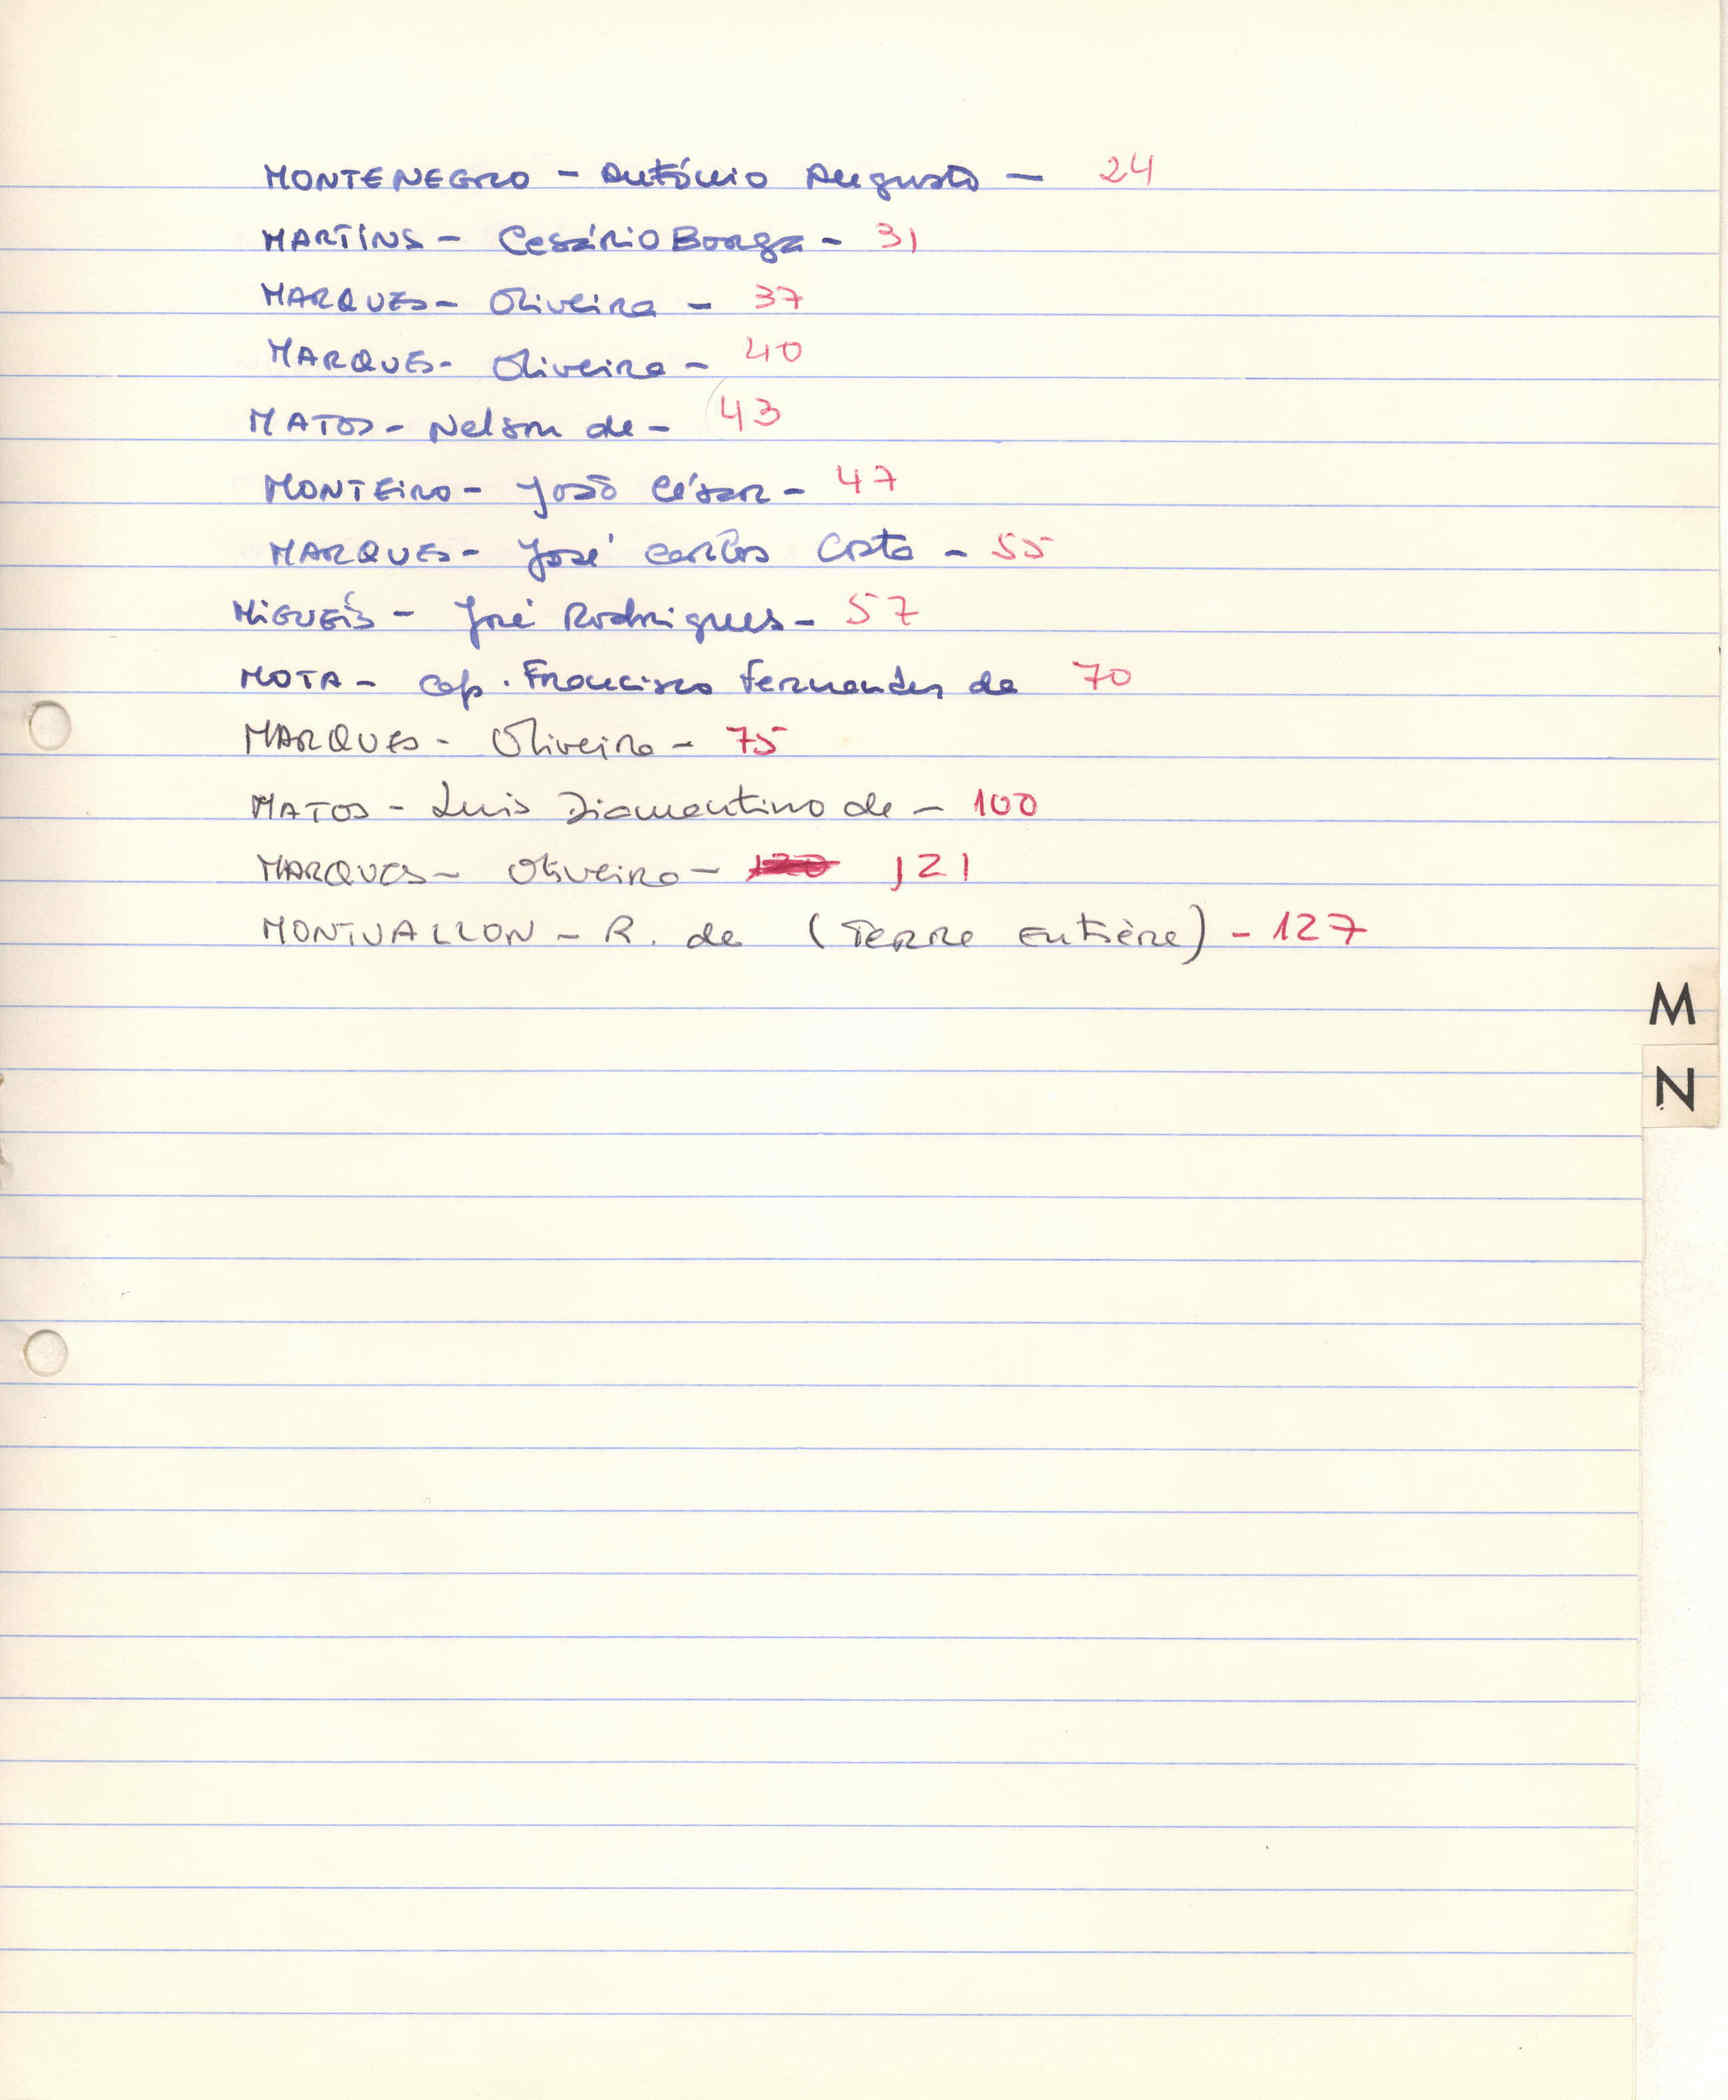 MONTENEGRO - António Augusto - 24
MARTINS - Cesário Borga - 31
MARQUES - Oliveira - 37
MARQUES - Oliveira - 40
MATOS - Nelson de - 43
MONTEIRO - João César - 47
MARQUES - José Carlos Costa - 55
MIGUÉIS - José Rodrigues - 57
MOTA - Cap. Francisco Fernandes da 70
MARQUES - Oliveira - 75
MATOS - Luis Diamantino de - 100
MARQUES - Oliveira - 120 121
MONTVALLON - R. de (Terre Entière) - 127
M
N